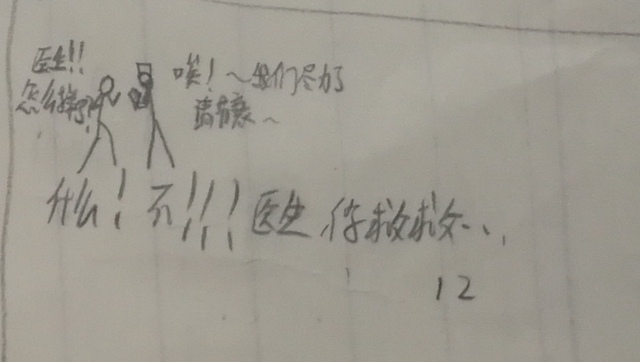 医生!!
怎么样了?
唉!～我们尽力了
请节哀～
什么! 不!!! 医生,你救救...
12